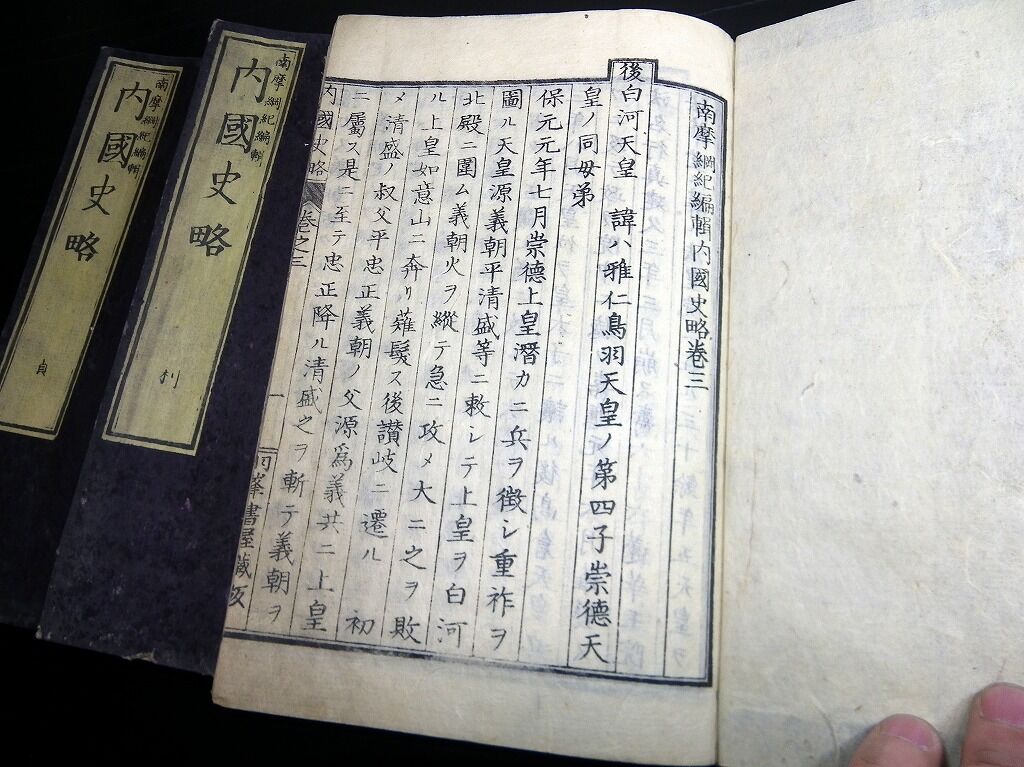 南摩綱紀編輯內國史略卷三
後白河天皇　諱ハ雅仁鳥羽天皇ノ第四子崇德天
皇ノ同母弟
保元元年七月崇德上皇潛カニ兵ヲ徵シ重祚ヲ
圖ル天皇源義朝平清盛等ニ敕シテ上皇ヲ白河
北殿ニ圍ム義朝火ヲ縱テ急ニ攻メ大ニ之ヲ敗
ル上皇如意山ニ奔リ薙髮ス後讚岐ニ遷ル　初
メ清盛ノ叔父平忠正義朝ノ父源爲義共ニ上皇
ニ屬ス是ニ至テ忠正降ル清盛之ヲ斬テ義朝ヲ
內國史略　卷之三　一　書屋藏
南摩綱紀編輯
內國史略
利
南摩綱紀編輯
內國史略
貞